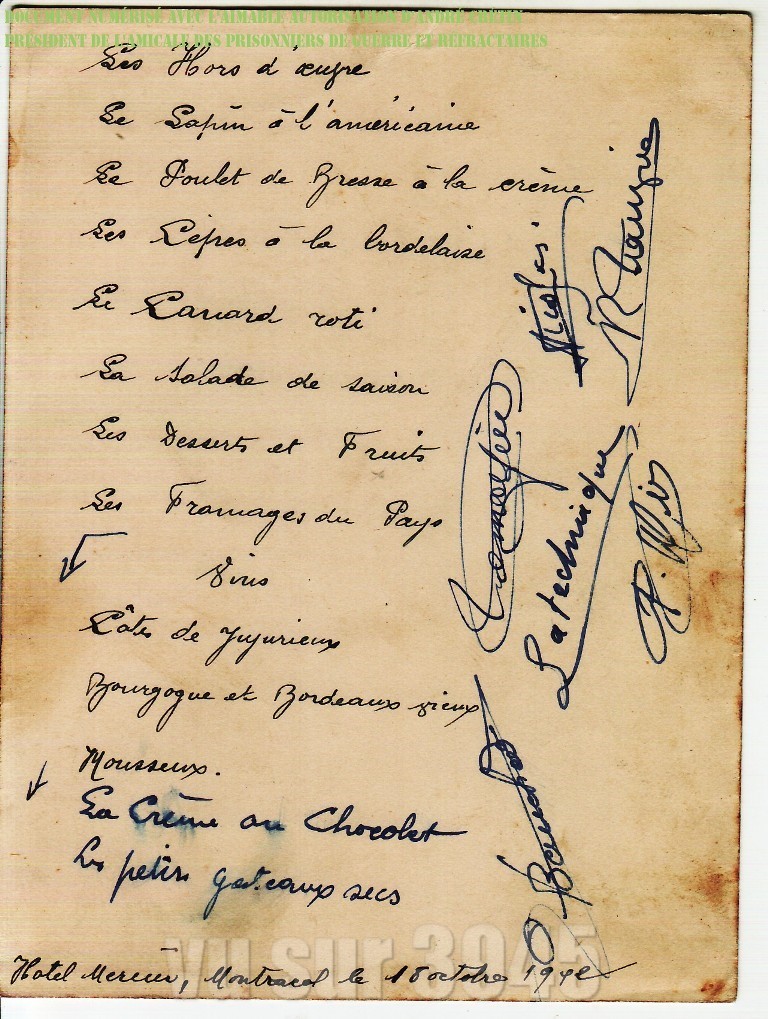 DOCUMENT NUMÉRISÉ AVEC L'AIMABLE AUTORISATION D'ANDRÉ CRÉTIN
PRÉSIDENT DE L'AMICALE DES PRISONNIERS DE GUERRE ET RÉFRACTAIRES
Les Hors d'œuvre
Le Lapin à l'américaine
Le Poulet de Bresse à la crème
Les Cèpes à la bordelaise
Le Canard roti
La Salade de saison
Les Desserts et Fruits
Les Fromages du Pays
Vins
Côtes de Jujurieux
Bourgogne et Bordeaux vieux
Mousseux.
La Crème au Chocolat
Les petits gateaux secs
Hotel Mercier, Montracol le 18 octobre 1942
Nicolas
Latechnique
vu sur 3945